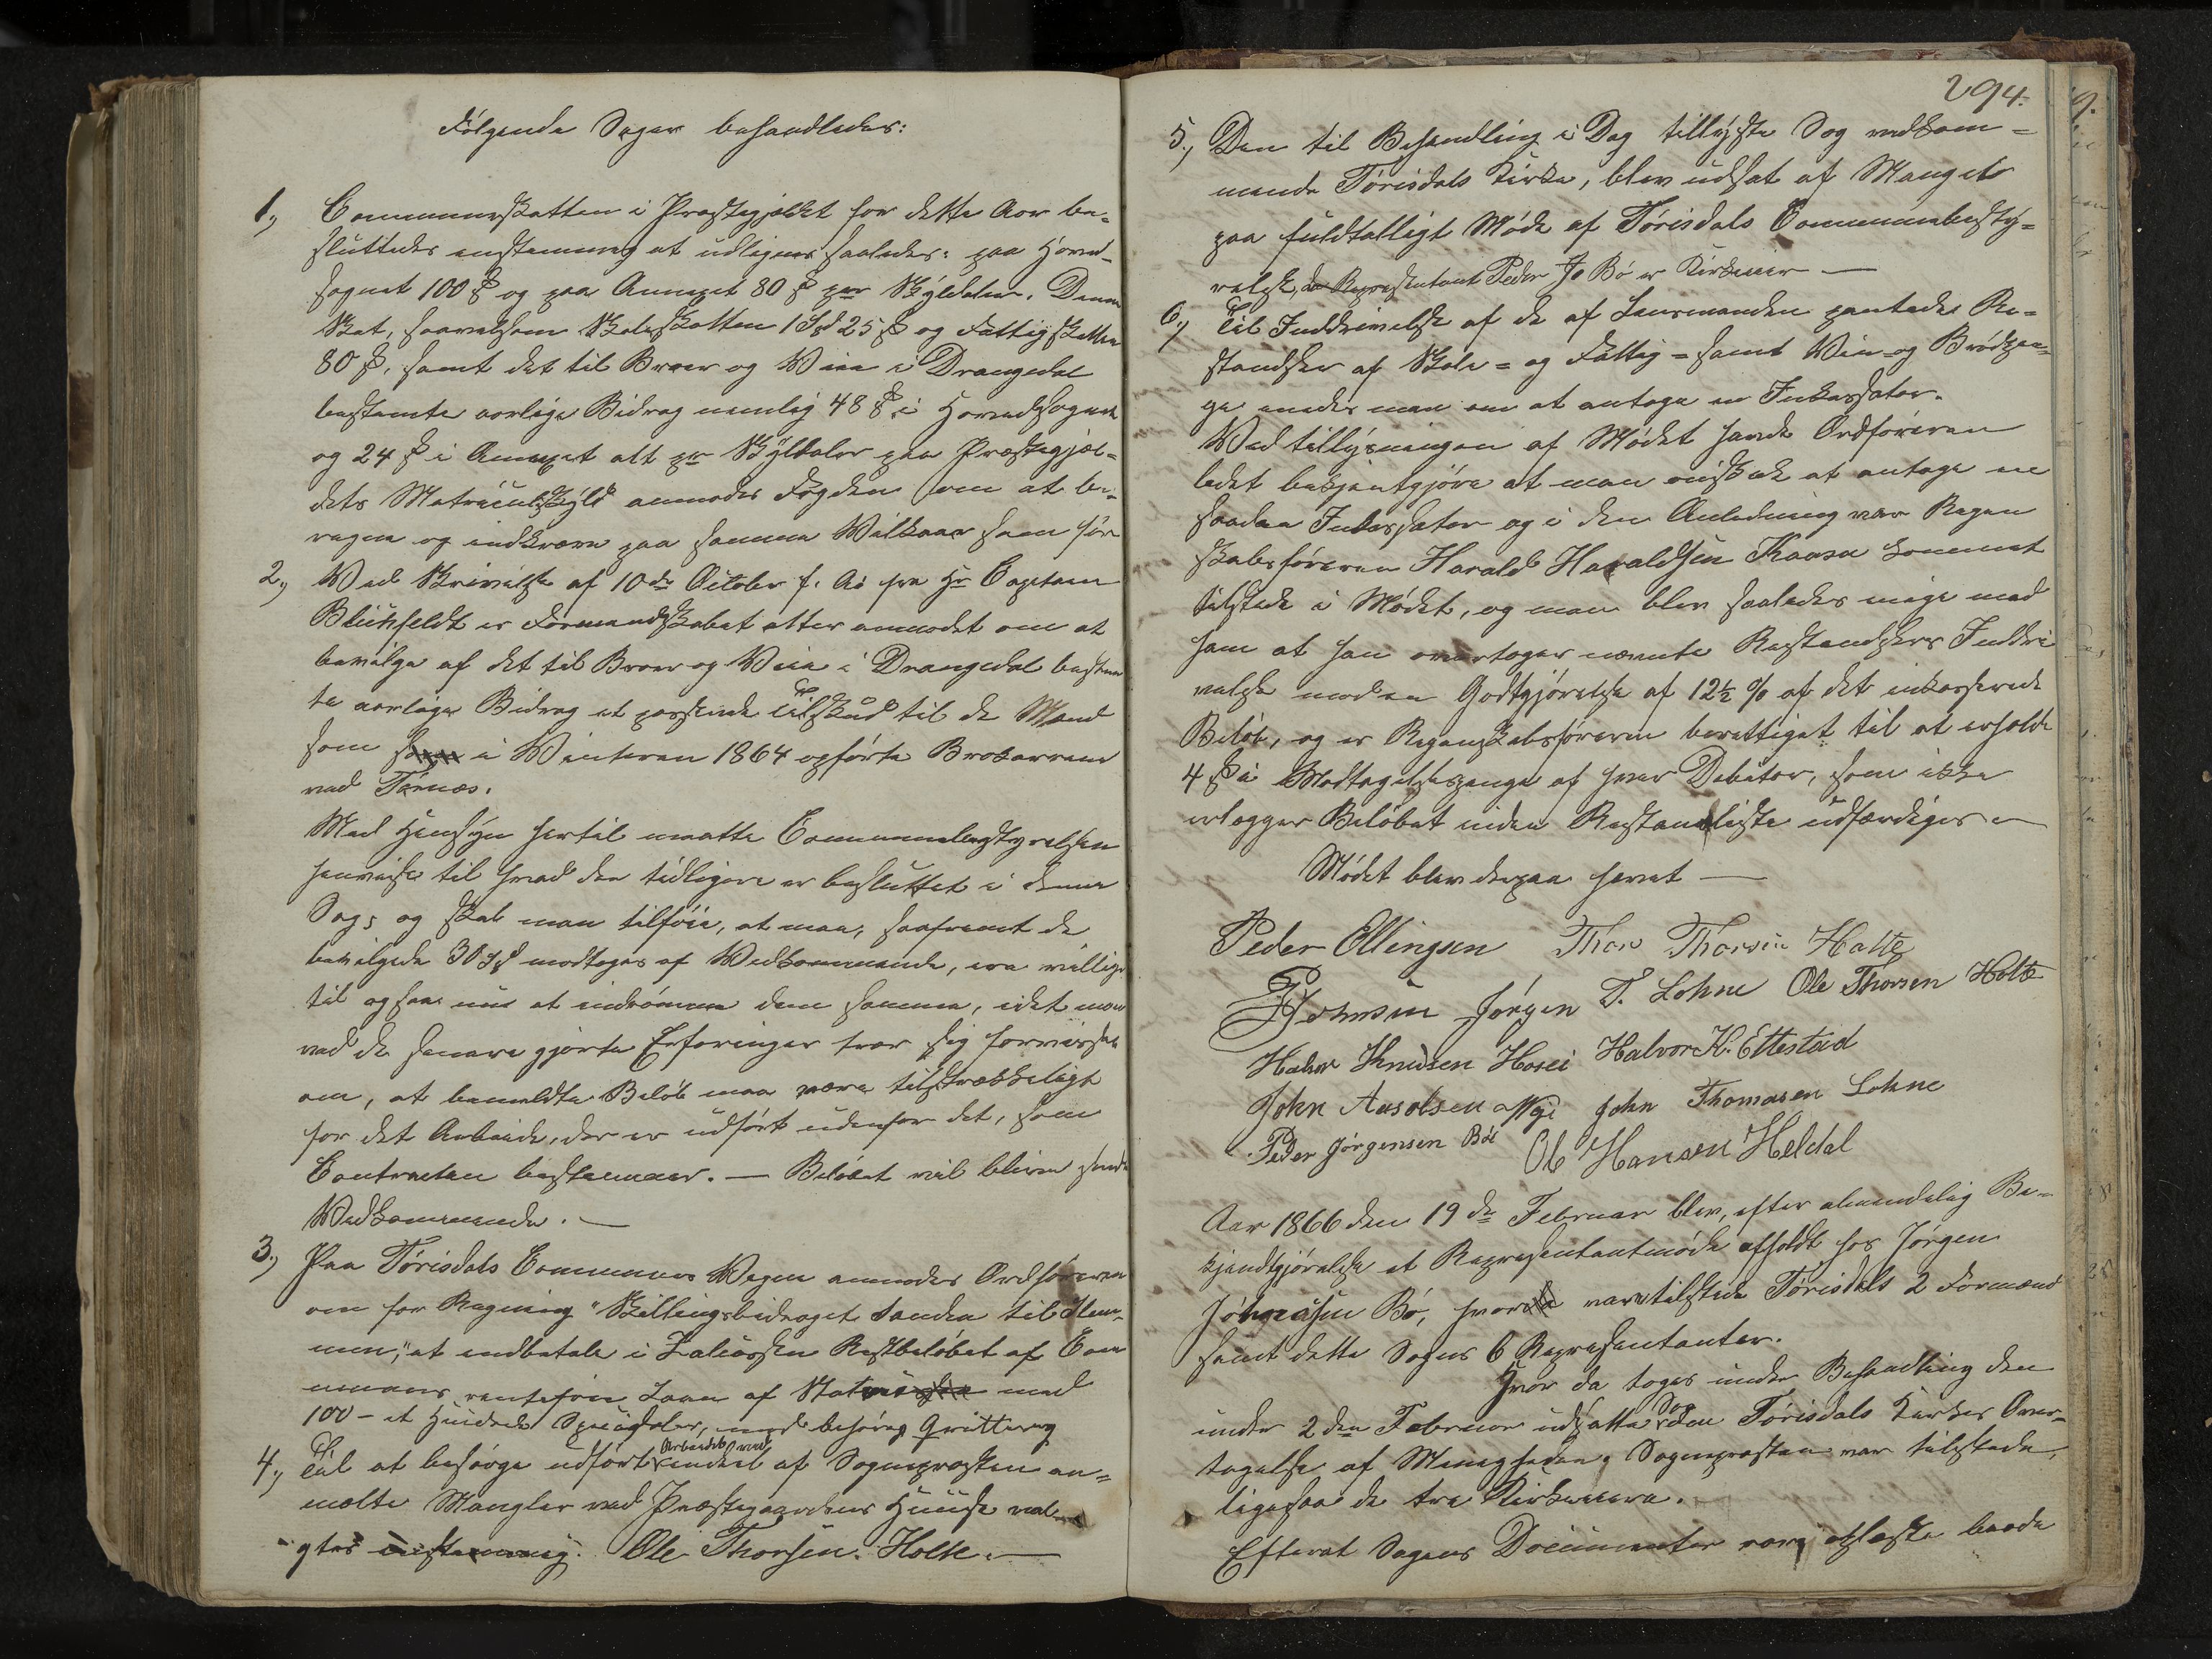 Følgende Sager behandledes:
1., Communeskatten i Præstegjeldet for dette Aar be-
sluttedes enstemmig at udlignes saaledes: paa Hoved-
sognet 100 ß og paa Annexet 80 ß pr Skylddaler. Denne
Skat, saavelsom Skoleskatten 1 Spd 25 ß og Fattigskatten
80 ß, samt det til Broer og Veie i Drangedal
bestemte aarlige Bidrag nemlig 48 ß i Hovedsognet
og 24 ß i Annexet alt pr Skylddaler paa Præstegjel-
dets Matriculskyld anmodes Fogden om at be-
regne og indkræve paa samme Vilkaar som før
2., Ved Skrivelse af 10de October f. A. fra Hr Capitain
Blichfeldt er Formandskabet atter anmodet om at
bevilge af det til Broer og Veie i Drangedal bestem
te aarlige Bidrag et passende Tilskud til de Mænd
som i Vinteren 1864 opførte Brokarrene
ved Tørnæs.
Med Hensyn hertil maatte Communebestyrelsen
henvise til hvad der tidligere er besluttet i denne
Sag, og skal man tilføie, at man, saafremt de
bevilgede 30 Spd modtages af Vedkommende, ere villige
til ogsaa nu at indrømme dem samme, idet man
ved de senere gjorte Erfaringer tror sig forvisset
om, at bemeldte Beløb maa være tilstrækkeligt
for det Arbeide, der er udført udenfor det, som
Contracten bestemmer. — Beløbet vil blive sendt
Vedkommende. —
3., Paa Tørisdals Communes Vegne anmodes Ordføreren
om for Regning "Skillingsbidraget Landen til
at indbetale i Restbeløbet af Com
munens rentefrie Laan af med
100 - et Hundrede Speciedaler, mod behørig Qvittering
4., Til at besørge udført Arbeidet ved endeel af Sognepræsten an-
mælte Mangler ved Præstegaardens Huuse val-
gtes enstemmig. Ole Thorsen Holte. —
294.
5., Den til Behandling i Dag tillyste Sag vedkom=
mende Tørisdals Kirke, blev udsat af Mangel
paa fuldtalligt Møde af Tørisdals Communebesty=
relse, da Repræsentant Peder Jø Bø er Kirkeeier —
6., Til Inddrivelse af de af Lensmanden pantede Re=
standser af Skole= og Fattig= samt Vin og Brødpen
ge enedes man om at antage en Inkassator.
Ved tillysningen af Mødet havde Ordføreren
ladet bekjentgjøre at man ønskede at antage en
saadan Inkassator og i den Anledning var Regn
skabsføreren Harald Haraldsen Kaasa kommet
tilstede i Mødet, og man blev saaledes enige med
ham at han overtager nævnte Restandsers Inddri
velse mod en Godtgjørelse af 12½ % af det inkasserede
Beløb, og er Regnskabsføreren berettiget til at erholde
4 ß i Modtagelsespenge af hver Debitor, som ikke
erlægger Beløbet inden Restanseliste udfærdiges —
Mødet blev derpaa hævet —
Peder Ellingsen Thor Thorsen Holte
Johnsen Jørgen T. Lohne Ole Thorsen Holte
Halvor Knudsen Hosei Halvor K. Ettestad
John Ausolsen John Thomasen Lohne
Peder Jørgensen Bø Ole Hansen Heldal
Aar 1866 den 19de Februar blev, efter almindelig Be-
kjendtgjørelse et Repræsentantmøde afholdt hos Jørgen
Bø, hvor vare tilstede Tørisdals 2 Formænd
samt dette Sogns 6 Repræsentanter.
Hvor da toges under Behandling den
under 2den Februar udsatte Sag om Tørisdals Kirkes Over-
tagelse af Menigheden, Sognepræsten var tilstede,
ligesaa de tre Kirkeeiere.
Efterat Sagens Documenter vare oplæste baade